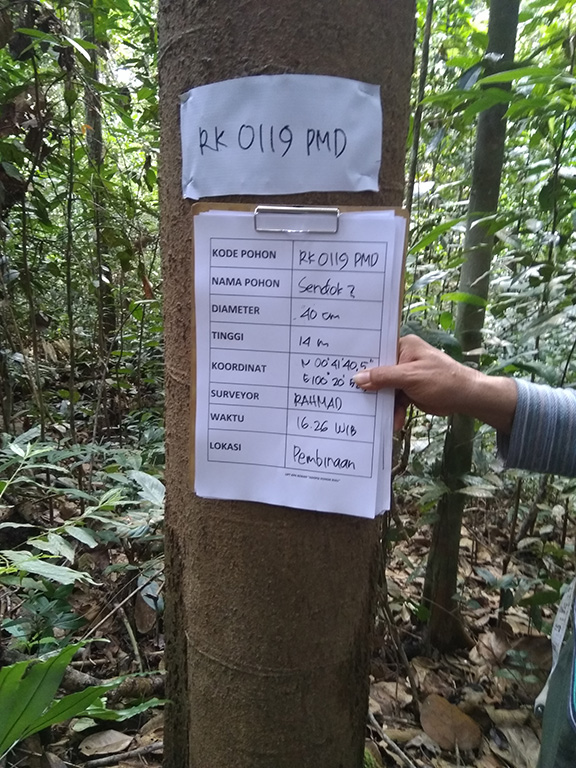 RK 0119 PMD
KODE POHON RK 0119 PMD
NAMA POHON Sendok ?
DIAMETER 40 cm
TINGGI 14 m
KOORDINAT N 00° 41' 40,5"
E 100° 20'
SURVEYOR RAHMAD
WAKTU 16.26 WIB
LOKASI Pembinaan